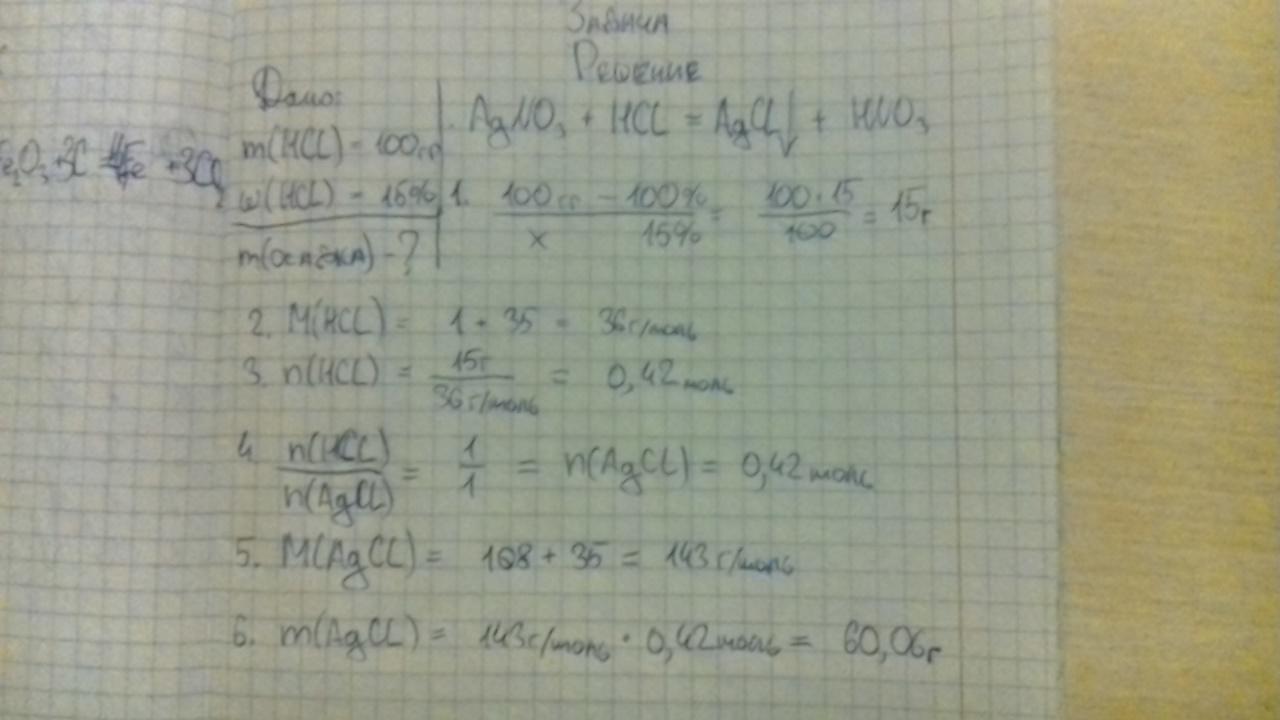 Задача
Решение
Дано:
m(HCL) - 100гр
w(HCL) - 15%
m(осадка) - ?
AgNO₃ + HCL = AgCL↓ + HNO₃
1. 100гр - 100% / x 15% = 100·15 / 100 = 15г
2. M(HCL) = 1 + 35 = 36г/моль
3. n(HCL) = 15г / 36г/моль = 0,42моль
4 n(HCL) / n(AgCL) = 1 / 1 = n(AgCL) = 0,42моль
5. M(AgCL) = 108 + 35 = 143г/моль
6. m(AgCL) = 143г/моль · 0,42моль = 60,06г